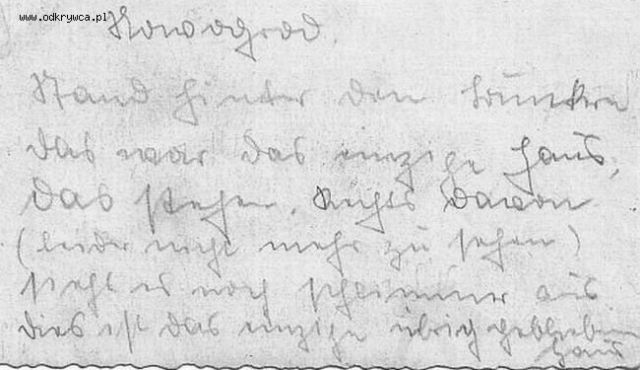 www.odkrywca.pl
Nowogrod.
Stand hinter den Brücken
das war das einzige Haus,
das stehen. Rechts davon
(leider nicht mehr zu sehen)
sieht es noch schlimmer aus
dies ist das einzige übrig geblieben
Haus